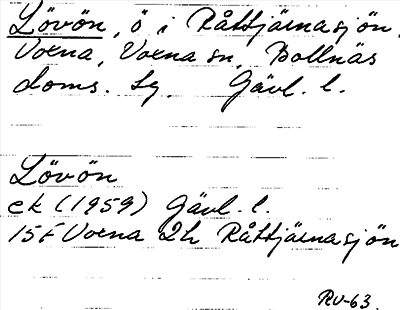 Lövön, ö i Råttjärnasjön,
Voxna, Voxna sn, Bollnäs
doms. sg. Gävl. l.
Lövön
ek (1959) Gävl. l.
15F Voxna 2h Råttjärnasjön
RV-63.